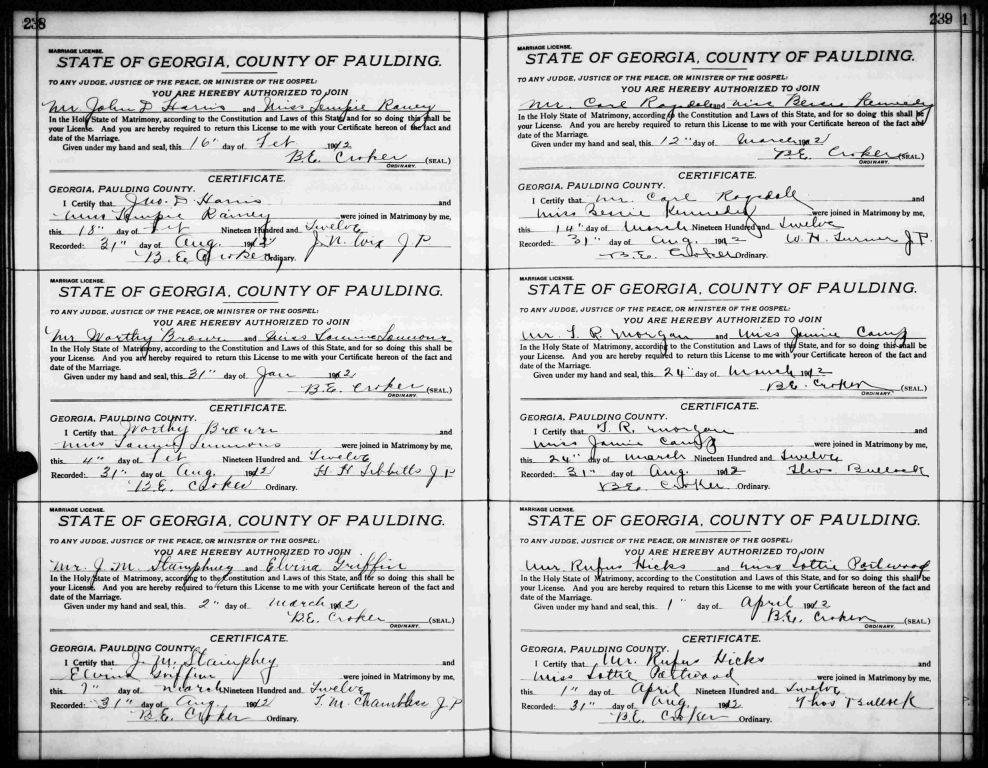 238
MARRIAGE LICENSE.
STATE OF GEORGIA, COUNTY OF PAULDING.
TO ANY JUDGE, JUSTICE OF THE PEACE, OR MINISTER OF THE GOSPEL:
YOU ARE HEREBY AUTHORIZED TO JOIN
Mr John D Harris and Miss Tempie Raney
In the Holy State of Matrimony, according to the Constitution and Laws of this State, and for so doing this shall be
your License. And you are hereby required to return this License to me with your Certificate hereon of the fact and
date of the Marriage.
Given under my hand and seal, this 16" day of Feb 1912
B.E. Croker (SEAL.)
ORDINARY.
CERTIFICATE.
GEORGIA, PAULDING COUNTY.
I Certify that Jno. D. Harris and
Miss Tempie Rainey were joined in Matrimony by me,
this 18" day of Feb Nineteen Hundred and Twelve
Recorded: 31" day of Aug. 1912 J.N. Cox J P
B.E. Croker Ordinary.
MARRIAGE LICENSE.
STATE OF GEORGIA, COUNTY OF PAULDING.
TO ANY JUDGE, JUSTICE OF THE PEACE, OR MINISTER OF THE GOSPEL:
YOU ARE HEREBY AUTHORIZED TO JOIN
Mr Worthy Brown and Miss Simmons
In the Holy State of Matrimony, according to the Constitution and Laws of this State, and for so doing this shall be
your License. And you are hereby required to return this License to me with your Certificate hereon of the fact and
date of the Marriage.
Given under my hand and seal, this 31" day of Jan 1912
B.E. Croker (SEAL.)
ORDINARY.
CERTIFICATE.
GEORGIA, PAULDING COUNTY.
I Certify that Worthy Brown and
Miss Simmons were joined in Matrimony by me,
this 4" day of Feb Nineteen Hundred and Twelve
Recorded: 31" day of Aug. 1912 H H Tibbitts J P
B.E. Croker Ordinary.
MARRIAGE LICENSE.
STATE OF GEORGIA, COUNTY OF PAULDING.
TO ANY JUDGE, JUSTICE OF THE PEACE, OR MINISTER OF THE GOSPEL:
YOU ARE HEREBY AUTHORIZED TO JOIN
Mr. J. M. Stamphney and Elvina Griffin
In the Holy State of Matrimony, according to the Constitution and Laws of this State, and for so doing this shall be
your License. And you are hereby required to return this License to me with your Certificate hereon of the fact and
date of the Marriage.
Given under my hand and seal, this 2" day of March 1912
B.E. Croker (SEAL.)
ORDINARY.
CERTIFICATE.
GEORGIA, PAULDING COUNTY.
I Certify that J. M. Stamphey and
Elvina Griffin were joined in Matrimony by me,
this 7" day of March Nineteen Hundred and Twelve
Recorded: 31" day of Aug. 1912 T. M. Chambless J P
B.E. Croker Ordinary.
239 1
MARRIAGE LICENSE.
STATE OF GEORGIA, COUNTY OF PAULDING.
TO ANY JUDGE, JUSTICE OF THE PEACE, OR MINISTER OF THE GOSPEL:
YOU ARE HEREBY AUTHORIZED TO JOIN
Mr. Carl Ragsdale and Miss Bessie Kennedy
In the Holy State of Matrimony, according to the Constitution and Laws of this State, and for so doing this shall be
your License. And you are hereby required to return this License to me with your Certificate hereon of the fact and
date of the Marriage.
Given under my hand and seal, this 12" day of March 1912
B.E. Croker (SEAL.)
ORDINARY.
CERTIFICATE.
GEORGIA, PAULDING COUNTY.
I Certify that Mr. Carl Ragsdall and
Miss Bessie Kennedy were joined in Matrimony by me,
this 14" day of March Nineteen Hundred and Twelve
Recorded: 31" day of Aug. 1912 W. H. Turner J P.
B.E. Croker Ordinary.
MARRIAGE LICENSE.
STATE OF GEORGIA, COUNTY OF PAULDING.
TO ANY JUDGE, JUSTICE OF THE PEACE, OR MINISTER OF THE GOSPEL:
YOU ARE HEREBY AUTHORIZED TO JOIN
Mr. T. R. Morgan and Miss Jamie Camp
In the Holy State of Matrimony, according to the Constitution and Laws of this State, and for so doing this shall be
your License. And you are hereby required to return this License to me with your Certificate hereon of the fact and
date of the Marriage.
Given under my hand and seal, this 24" day of March 1912
B.E. Croker (SEAL.)
ORDINARY.
CERTIFICATE.
GEORGIA, PAULDING COUNTY.
I Certify that T. R. Morgan and
Miss Jamie Camp were joined in Matrimony by me,
this 24" day of March Nineteen Hundred and Twelve
Recorded: 31" day of Aug. 1912 Thos Bullock
B.E. Croker Ordinary.
MARRIAGE LICENSE.
STATE OF GEORGIA, COUNTY OF PAULDING.
TO ANY JUDGE, JUSTICE OF THE PEACE, OR MINISTER OF THE GOSPEL:
YOU ARE HEREBY AUTHORIZED TO JOIN
Mr. Rufus Hicks and Miss Lottie Portwood
In the Holy State of Matrimony, according to the Constitution and Laws of this State, and for so doing this shall be
your License. And you are hereby required to return this License to me with your Certificate hereon of the fact and
date of the Marriage.
Given under my hand and seal, this 1" day of April 1912
B.E. Croker (SEAL.)
ORDINARY.
CERTIFICATE.
GEORGIA, PAULDING COUNTY.
I Certify that Mr. Rufus Hicks and
Miss Lottie Portwood were joined in Matrimony by me,
this 1" day of April Nineteen Hundred and Twelve
Recorded: 31" day of Aug. 1912 Thos Bullock
B.E. Croker Ordinary.